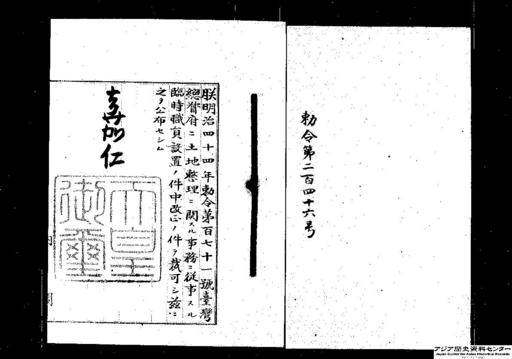 勅令第二百四十六号
朕明治四十四年勅令第百七十一號臺灣
總督府ニ土地整理ニ関スル事務ニ従事スル
臨時職員設置ノ件中改正ノ件ヲ裁可シ茲ニ
之ヲ公布セシム
嘉仁
天皇御璽
アジア歴史資料センター
Japan Center for Asian Historical Records